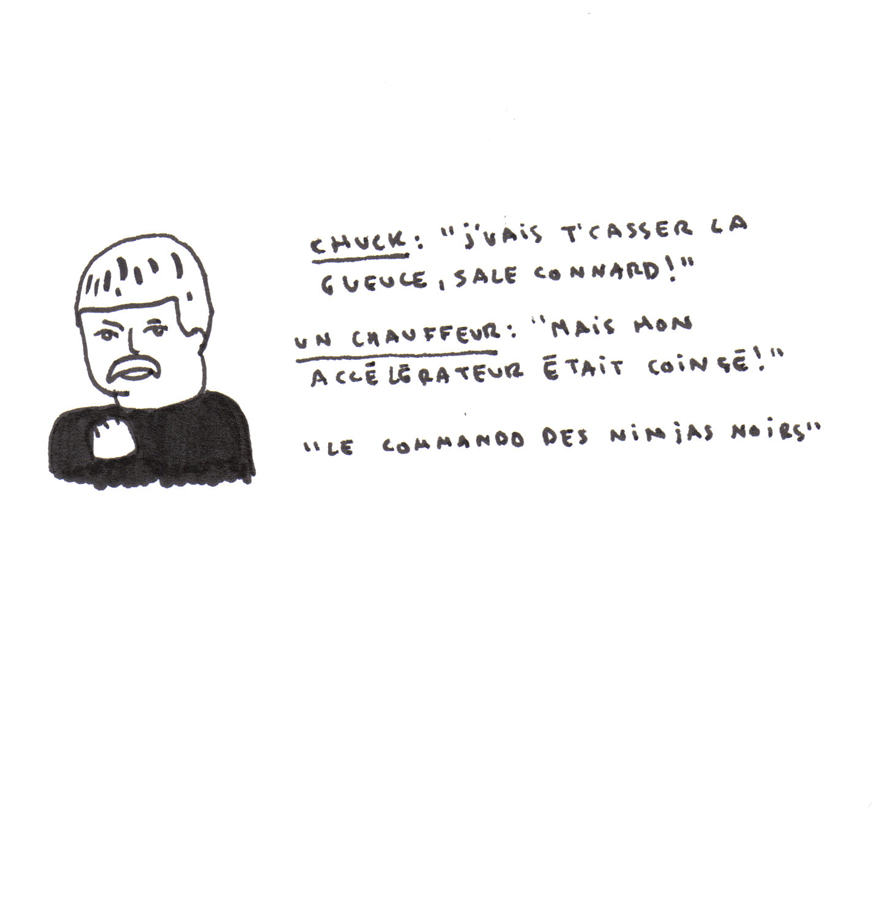 CHUCK: "j'VAiS T'CASSER LA
GUEULE, SALE CONNARD!"
UN CHAUFFEUR: "MAiS MON
ACCÉLÉRATEUR ÉTAiT COiNCÉ!"
"LE COMMANDO DES NiNjAS NOiRS"